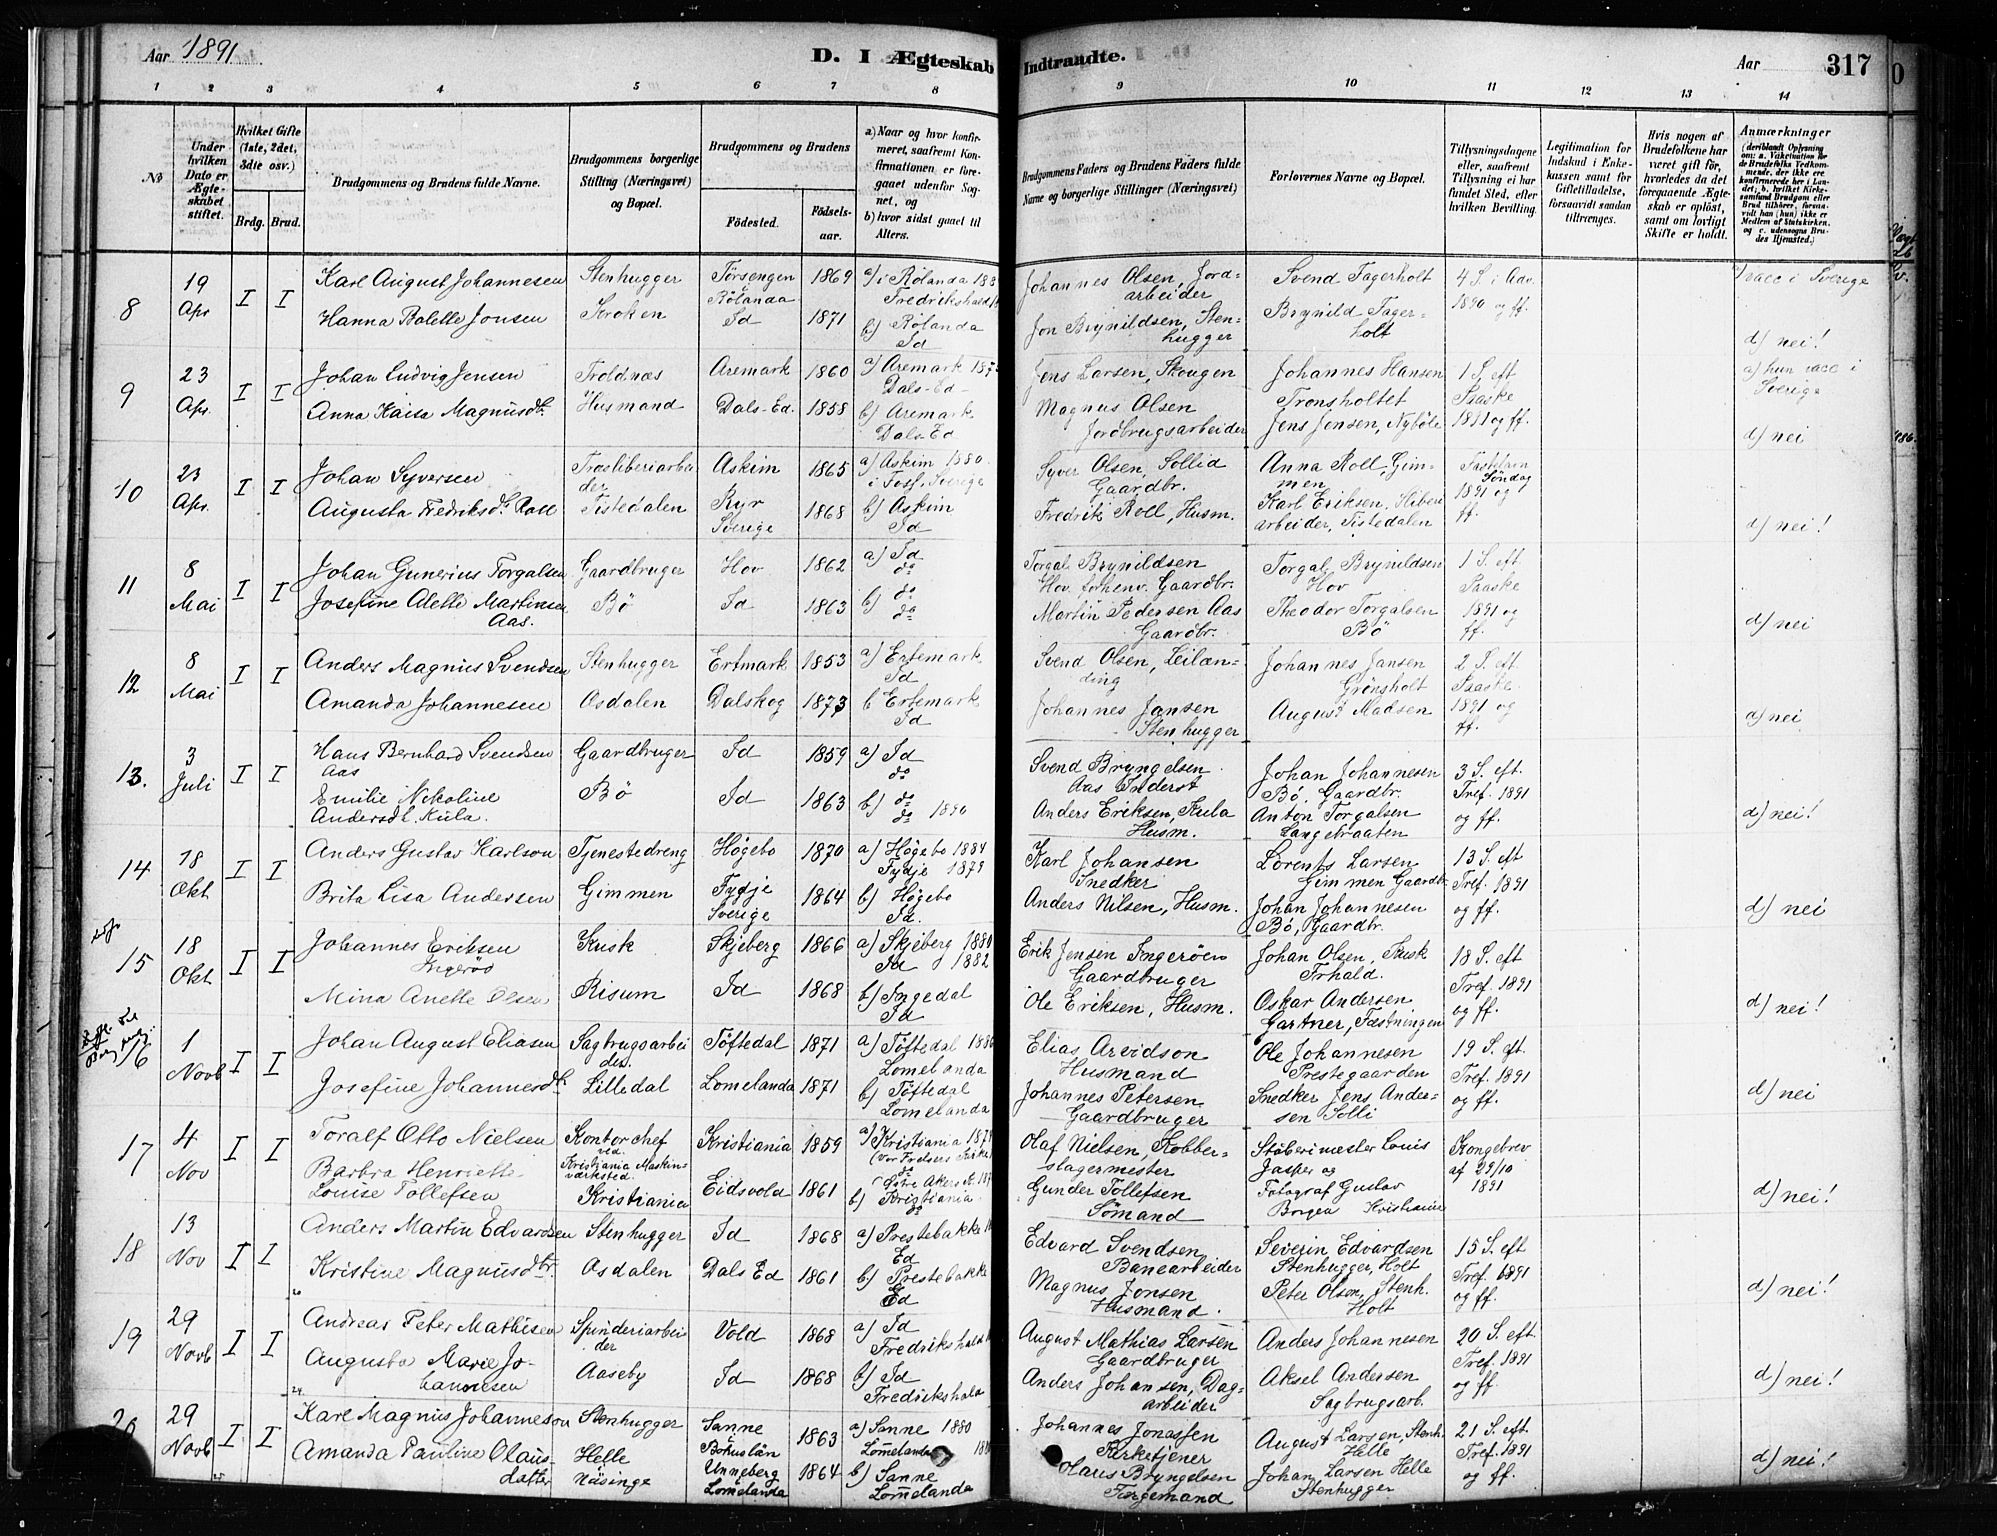 Aar 1891
D. I Ægteskab Indtraadte.
Aar
317
1 2 3 4 5 6 7 8 9 10 11 12 13 14
No
Under hvilken Dato er Ægteskabet stiftet.
Hvilket Gifte (1ste, 2det, 3die osv.)
Brdg. Brud.
Brudgommens og Brudens fulde Navne.
Brudgommens borgerlige Stilling (Næringsvei) og Bopæl.
Brudgommens og Brudens
Födested.
Födselsaar.
a) Naar og hvor konfirmeret, saafremt Konfirmationen er foregaaet udenfor Sognet, og
b) hvor sidst gaaet til Alters.
Brudgommens Faders og Brudens Faders fulde Navne og borgerlige Stillinger (Næringsvei)
Forlovernes Navne og Bopæl.
Tillysningsdagene eller, saafremt Tillysning ei har fundet Sted, efter hvilken Bevilling.
Legitimation for Indskud i Enkekassen samt for Giftetilladelse, forsaavidt saadan tiltrænges.
Hvis nogen af Brudefolkene har været gift för, hvorledes da det forgaaende Ægteskab er oplöst, samt om lovligt Skifte er holdt.
Anmærkninger
8 19 Apr I I
Karl August Johannesen Stenhugger Törsengen Rölanda 1869 a) i Rölanda Fredrikshald
Hanna Bolette Jonsen Kroken Id 1871 b) Rölanda Id
Johannes Olsen, Jordarbeider
Jon Brynildsen, Stenhugger
Svend Fagerholt
Brynild Fagerholt
4 S. i Adv. 1890 og ff.
vacc i Sverige
d) nei!
9 23 Apr. I I
Johan Ludvig Jensen Troldnæs Aremark 1860 a) Aremark Dals-Ed
Anna Kaisa Magnusdtr. Husmand Dals-Ed. 1858 b) Aremark Dals Ed
Jens Larsen, Skougen
Magnus Olsen Jordbrugsarbeider
Johannes Hansen Tronsholtet
Jens Jensen, Nyböle
1 S. eft Paaske 1891 og ff.
a) hun vacc i Sverige
d) nei
10 23 Apr. I I
Johan Syversen Træsliberiarbeider Askim 1865 a) Askim 1880 i Fosf. Sverige
Augusta Fredriksdtr. Roll Tistedalen Ryr Sverige 1868 b) Askim Id
Syver Olsen, Sollid Gaardbr.
Fredrik Roll, Husm.
Anna Roll, Gimmen
Karl Eriksen, Sliberiarbeider, Tistedalen
Fastelavn Söndag 1891 og ff.
d) nei!
11 8 Mai I I
Johan Gunerius Torgalsen Gaardbruger Hov 1862 a) Id do
Josefine Alette Martinsen Aas. Bö Id 1863 b) do do
Torgal Brynildsen Hov, forhenv. Gaardbr.
Martin Pedersen Aas Gaardbr.
Torgal Brynildsen Hov
Theodor Torgalsen Bö
1 S. eft Paaske 1891 og ff.
d) nei
12 8 Mai I I
Anders Magnus Svendsen Stenhugger Ertmark 1853 a) Ertemark Id
Amanda Johannesen Osdalen Dalskog 1873 b Ertemark Id
Svend Olsen, Leilænding
Johannes Jansen Stenhugger
Johannes Jansen Grönsholt
August Madsen
2 S. eft. Paaske 1891 og ff.
d) nei
13. 3 Juli I I
Hans Bernhard Svendsen Aas Gaardbruger Id 1859 a) Id do
Emilie Nikoline Andersdt. Kula. Bö Id 1863 b) do do 1890
Svend Bryngelsen Aas Inderst
Anders Eriksen, Kula Husm.
Johan Johannesen Bö, Gaardbr.
Anton Torgalsen Langebraaten
3 S. eft. Tref. 1891 og ff.
d) nei!
14 18 Okt I I
Anders Gustav Karlson Tjenestedreng Högebo 1870 a) Högebo 1884 Fydje 1879
Brita Lisa Andersen Gimmen Fydje Sverige 1864 b) Högebo Id.
Karl Johansen Snedker
Anders Nilsen, Husm.
Lorents Larsen Gimmen Gaardbr.
Johan Johannesen Bö, Gaardbr.
13 S. eft Tref. 1891 og ff.
d) nei
15 18 Okt I I
Johannes Eriksen Ingeröd Kusk Skjeberg 1866 a) Skjeberg 1880 Id 1882
Mina Anette Olsen Risum Id 1868 b) Ingedal Id
Erik Jensen Ingeröen Gaardbruger
Ole Eriksen, Husm.
Johan Olsen, Kusk Frhald.
Oskar Andersen Gartner, Fæstningen
18 S. eft Tref. 1891 og ff.
d) nei!
16 1 Novb I I
Johan August Eliasen Sagbrugsarbeider. Töftedal 1871 a) Töftedal 1886 Lomelanda
Josefine Johannesdt. Lilledal Lomelanda 1871 b) Töftedal Lomelanda
Elias Arvidson Husmand
Johannes Petersen Gaardbruger
Ole Johannesen Prestegaarden
Snedker Jens Andersen Solli
19 S. eft. Tref. 1891 og ff.
d) nei
17 4 Nov I I
Toralf Otto Nielsen Kontorchef ved Kristiania Maskinværksted. Kristiania 1859 a) Kristiania (Vor Frelsers Kirke)
Barbra Henriette Louise Tollefsen Kristiania Eidsvold 1861 b) Kristiania do
Olaf Nielsen, Kobberslagermester
Gunder Tollefsen Sömand
Støberimester Louis Jasper og
Fotograf Gustav Borgen Kristiania
Kongebrev af 29/10 1891
d) nei!
18 13 Nov I I
Anders Martin Edvardsen Stenhugger Id 1868 a) Prestebakke Ed
Kristine Magnusdtr. Osdalen Dals Ed 1861 b) Prestebakke Ed
Edvard Svendsen Banearbeider
Magnus Jonsen Husmand.
Severin Edvardsen Stenhugger, Holt
Peter Olsen, Stenh. Holt
15 S. eft Tref. 1891 og ff.
d) nei!
19 29 Novb I I
Andreas Peter Mathisen Spinderiarbeider Vold 1868 a) Id Fredrikshald
Augusta Marie Johannesen Aaseby Id 1868 b) Id Fredrikshald
August Mathias Larsen Gaardbruger
Anders Johansen, Dagarbeider
Anders Johannesen
Aksel Andersen Sagbrugsarb.
20 S. eft. Tref. 1891 og ff.
d) nei!
20 29 Novb I I
Karl Magnus Johanneson Stenhugger Sanne Bohuslän 1863 a) Sanne 1880 Lomelanda
Amanda Pauline Olausdatter Helle Näsinge Unneberg Lomelanda 1864 b) Sanne Lomelanda
Johannes Jonassen Kirketjener
Olaus Bryngelsen Tingemand
August Larsen Stenh. Helle
Johan Larsen Helle Stenhugger
21 S. eft. Tref. 1891 og ff.
d) nei!